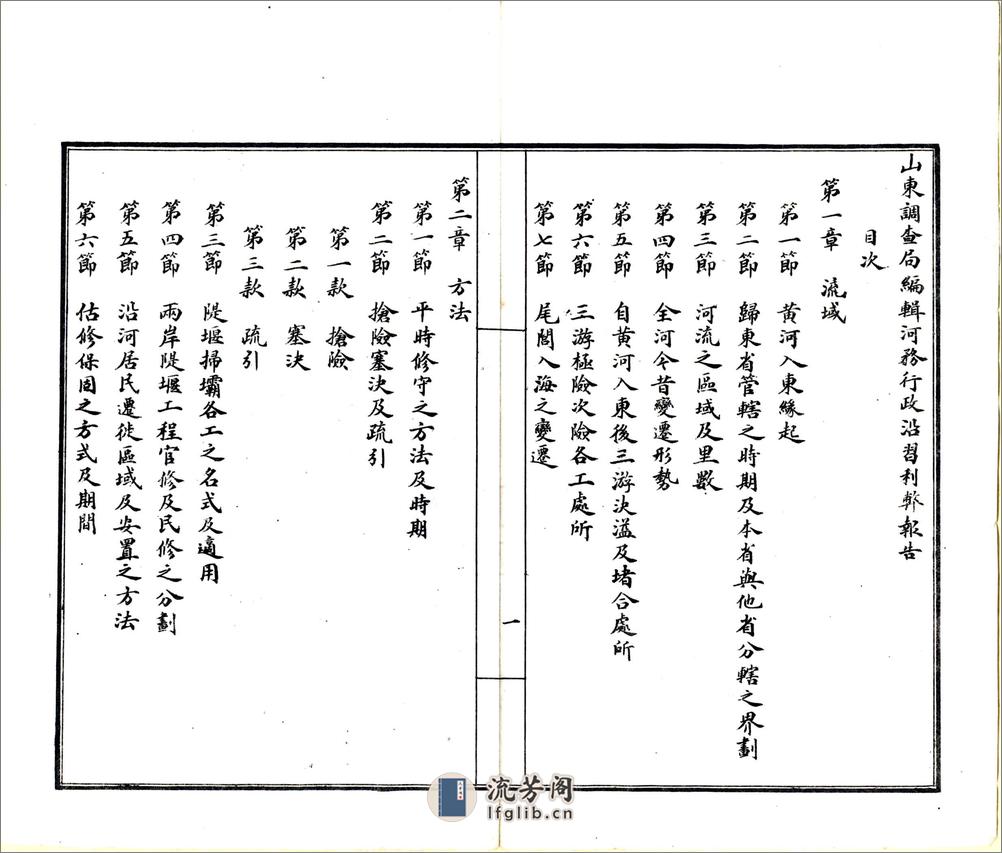 山東調查局編輯河務行政沿習利弊報告
目次
第一章　流域
第一節　黃河入東緣起
第二節　歸東省管轄之時期及本省與他省分轄之界劃
第三節　河流之區域及里數
第四節　全河今昔變遷形勢
第五節　自黃河入東後三游決溢及堵合處所
第六節　三游極險次險各工處所
第七節　尾閭入海之變遷
一
第二章　方法
第一節　平時修守之方法及時期
第二節　搶險塞決及疏引
第一款　搶險
第二款　塞決
第三款　疏引
第三節　隄堰掃壩各工之名式及適用
第四節　兩岸隄堰工程官修及民修之分劃
第五節　沿河居民遷徙區域及安置之方法
第六節　估修保固之方式及期間
流芳阁
lfglib.cn